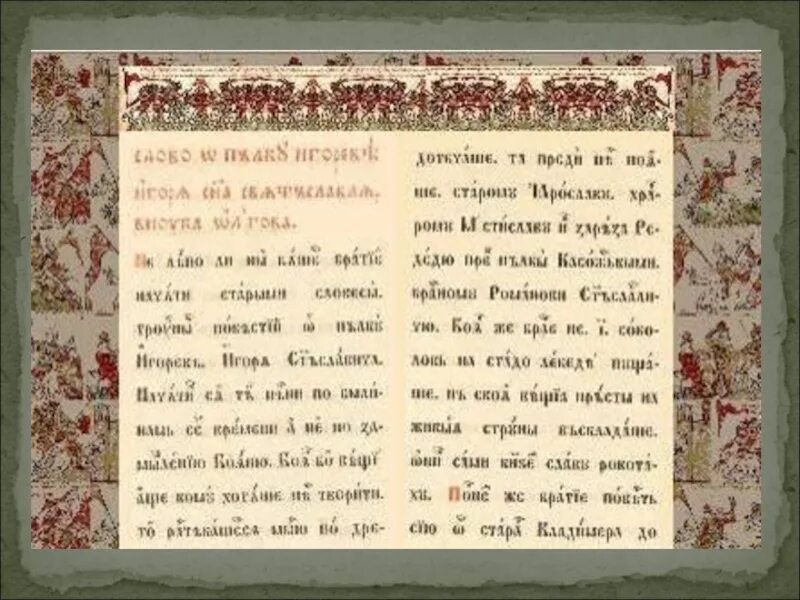 слово ѡ пълкꙋ игоревѣ
игорѧ сн҃а свѧтъславлѧ,
внꙋка ѡльгова.
Не лѣпо ли ны бѧше братїе
начѧти старыми словесы,
трꙋдныⷯ повѣстїй ѡ пълкꙋ
Игоревѣ. Игорѧ Ст҃ъславича.
Начатиⷤ сѧ тъ пѣсни по были-
намъ сеⷢ времени а не по за-
мышленїю Боѧню. Боѧⷩ бо вѣщїй
аще комꙋ хотѧше пѣⷭ творити.
то растѣкашетсѧ мыслїю по дре-
доткчаше. та преди пѣⷭ поѧ-
ше. старомꙋ Ꙗрославꙋ. храб-
ромꙋ Мъстиславꙋ иⷤ зарѣза Ре-
дедю преⷣ пълкы Касожьскыми.
красномꙋ Романови Ст҃ъславли-
чю. Боѧⷩ же братⷷ не. і҃. соко-
ловь на стадо лебедеⷨ пꙋща-
ше. нъ своѧ вѣщїа пръсты на
живыѧ стрꙋны въскладаше.
ѡни же сами кнѧземъ славꙋ рокота-
хꙋ. Почнеⷨ же братїе повѣсть
сїю ѿ стараⷢ Владимера до